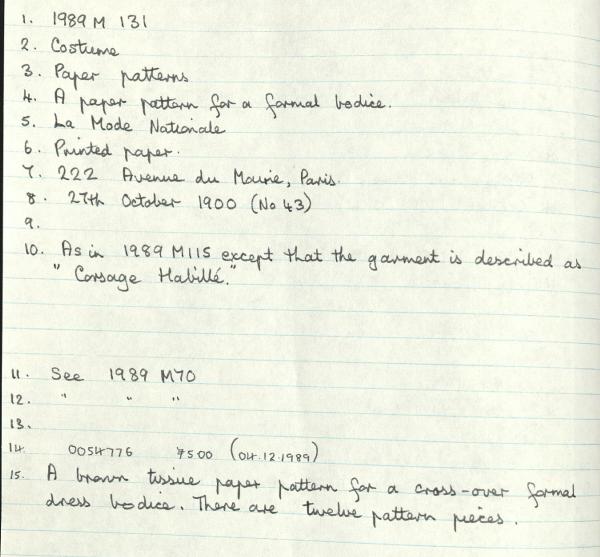 1. 1989 M 131
2. Costume
3. Paper patterns
4. A paper pattern for a formal bodice.
5. La Mode Nationale
6. Printed paper.
7. 222 Avenue du Maine, Paris.
8. 27th October 1900 (No 43)
9.
10. As in 1989 M115 except that the garment is described as
"Corsage Habillé."
11. See 1989 M70
12. " " "
13.
14. 0054776 7500 (04.12.1989)
15. A brown tissue paper pattern for a cross-over formal
dress bodice. There are twelve pattern pieces.